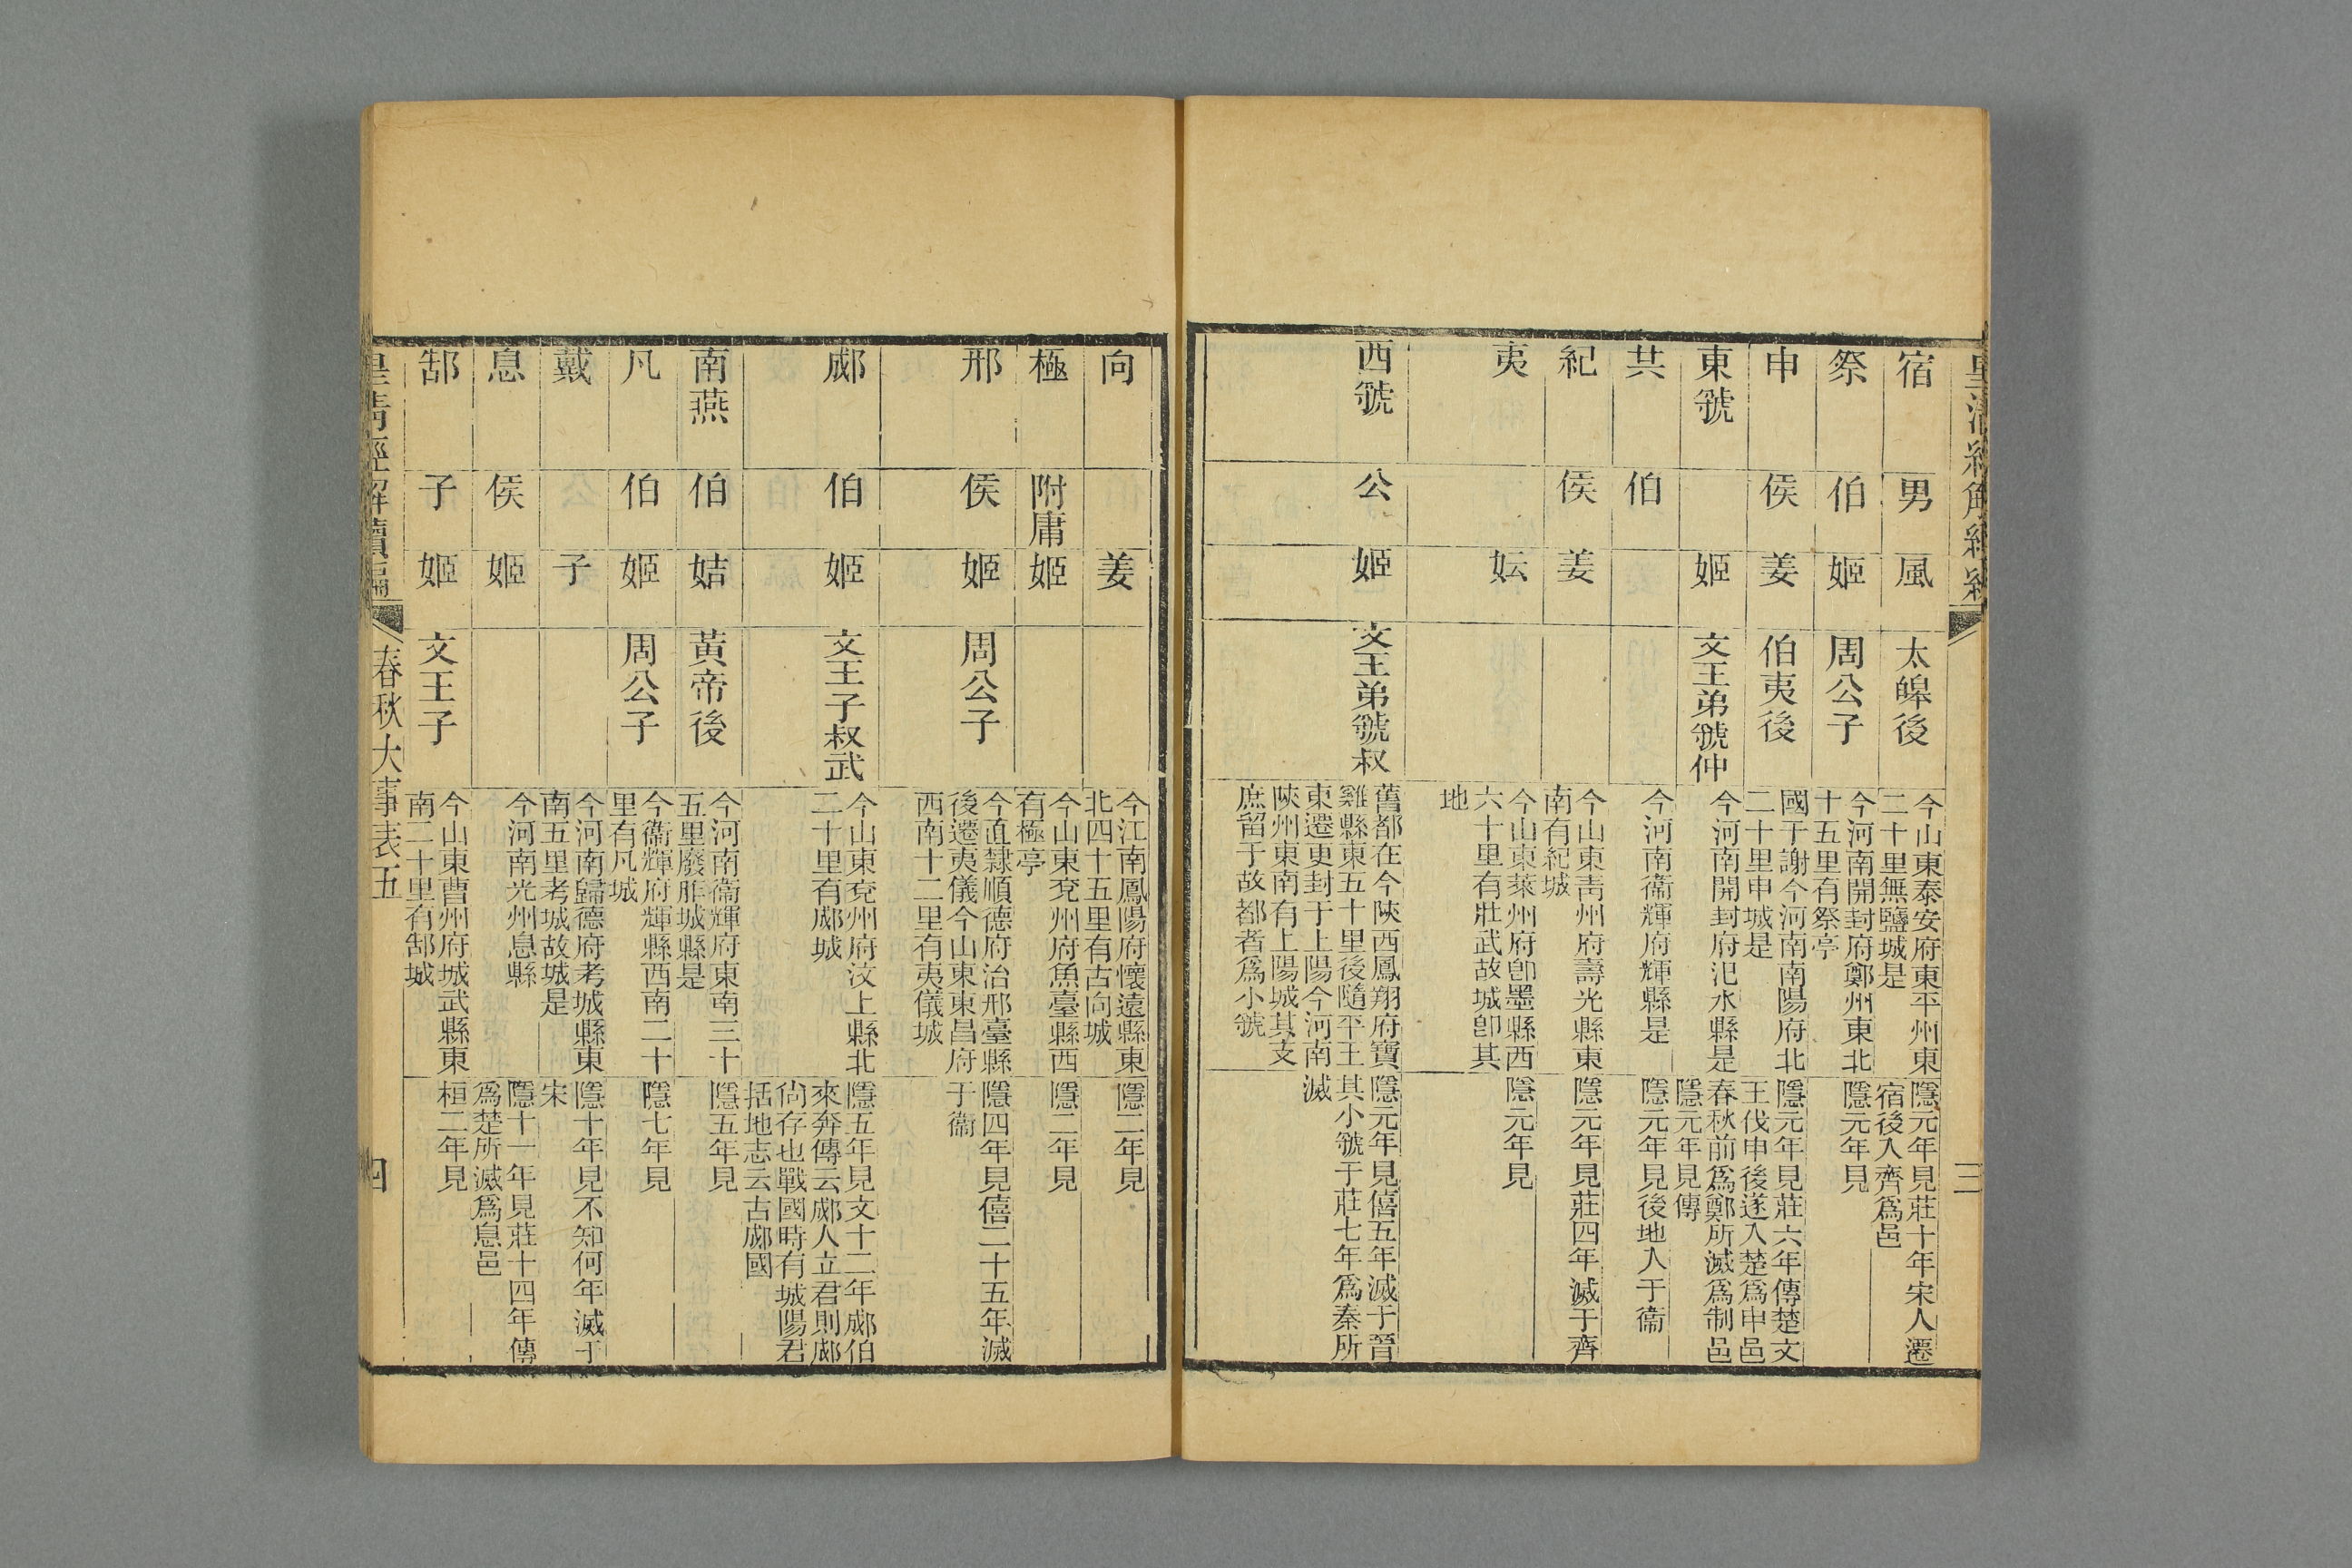 皇清經解續編 三
宿 男 風 太皞後
今山東泰安府東平州東
二十里無鹽城是
隱元年見莊十年宋人遷
宿後入齊爲邑
祭 伯 姬 周公子
今河南開封府鄭州東北
十五里有祭亭
隱元年見
申 侯 姜 伯夷後
國于謝今河南南陽府北
二十里申城是
隱元年見莊六年傳楚文
王伐申後遂入楚爲申邑
東虢 姬 文王弟虢仲
今河南開封府汜水縣是
春秋前爲鄭所滅爲制邑
隱元年見傳
共 伯
今河南衞輝府輝縣是
隱元年見後地入于衞
紀 侯 姜
今山東靑州府壽光縣東
南有紀城
隱元年見莊四年滅于齊
夷 妘
今山東萊州府卽墨縣西
六十里有壯武故城卽其
地
隱元年見
西虢 公 姬 文王弟虢叔
舊都在今陜西鳳翔府寶
雞縣東五十里後隨平王
東遷更封于上陽今河南
陜州東南有上陽城其支
庶留于故都者爲小虢
隱元年見僖五年滅于晉
其小虢于莊七年爲秦所
滅
向 姜
今江南鳳陽府懷遠縣東
北四十五里有古向城
隱二年見
極 附庸 姬
今山東兗州府魚臺縣西
有極亭
隱二年見
邢 侯 姬 周公子
今直隸順德府治邢臺縣
後遷夷儀今山東東昌府
西南十二里有夷儀城
隱四年見僖二十五年滅
于衞
郕 伯 姬 文王子叔武
今山東兗州府汶上縣北
二十里有郕城
隱五年見文十二年郕伯
來奔傳云郕人立君則郕
尙存也戰國時有城陽君
括地志云古郕國
南燕 伯 姞 黃帝後
今河南衞輝府東南三十
五里廢胙城縣是
隱五年見
凡 伯 姬 周公子
今衞輝府輝縣西南二十
里有凡城
隱七年見
戴 子
今河南歸德府考城縣東
南五里考城故城是
隱十年見不知何年滅于
宋
息 侯 姬
今河南光州息縣
隱十一年見莊十四年傳
爲楚所滅爲息邑
郜 子 姬 文王子
今山東曹州府城武縣東
南二十里有郜城
桓二年見
皇清經解續編 春秋大事表五 四